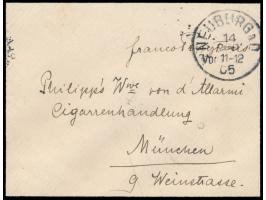 NEUBURG a.D.
14
Vor 11-12
05
franco
Philipp's Wwe von d'Allarmi
Cigarrenhandlung
München
9 Weinstrasse.